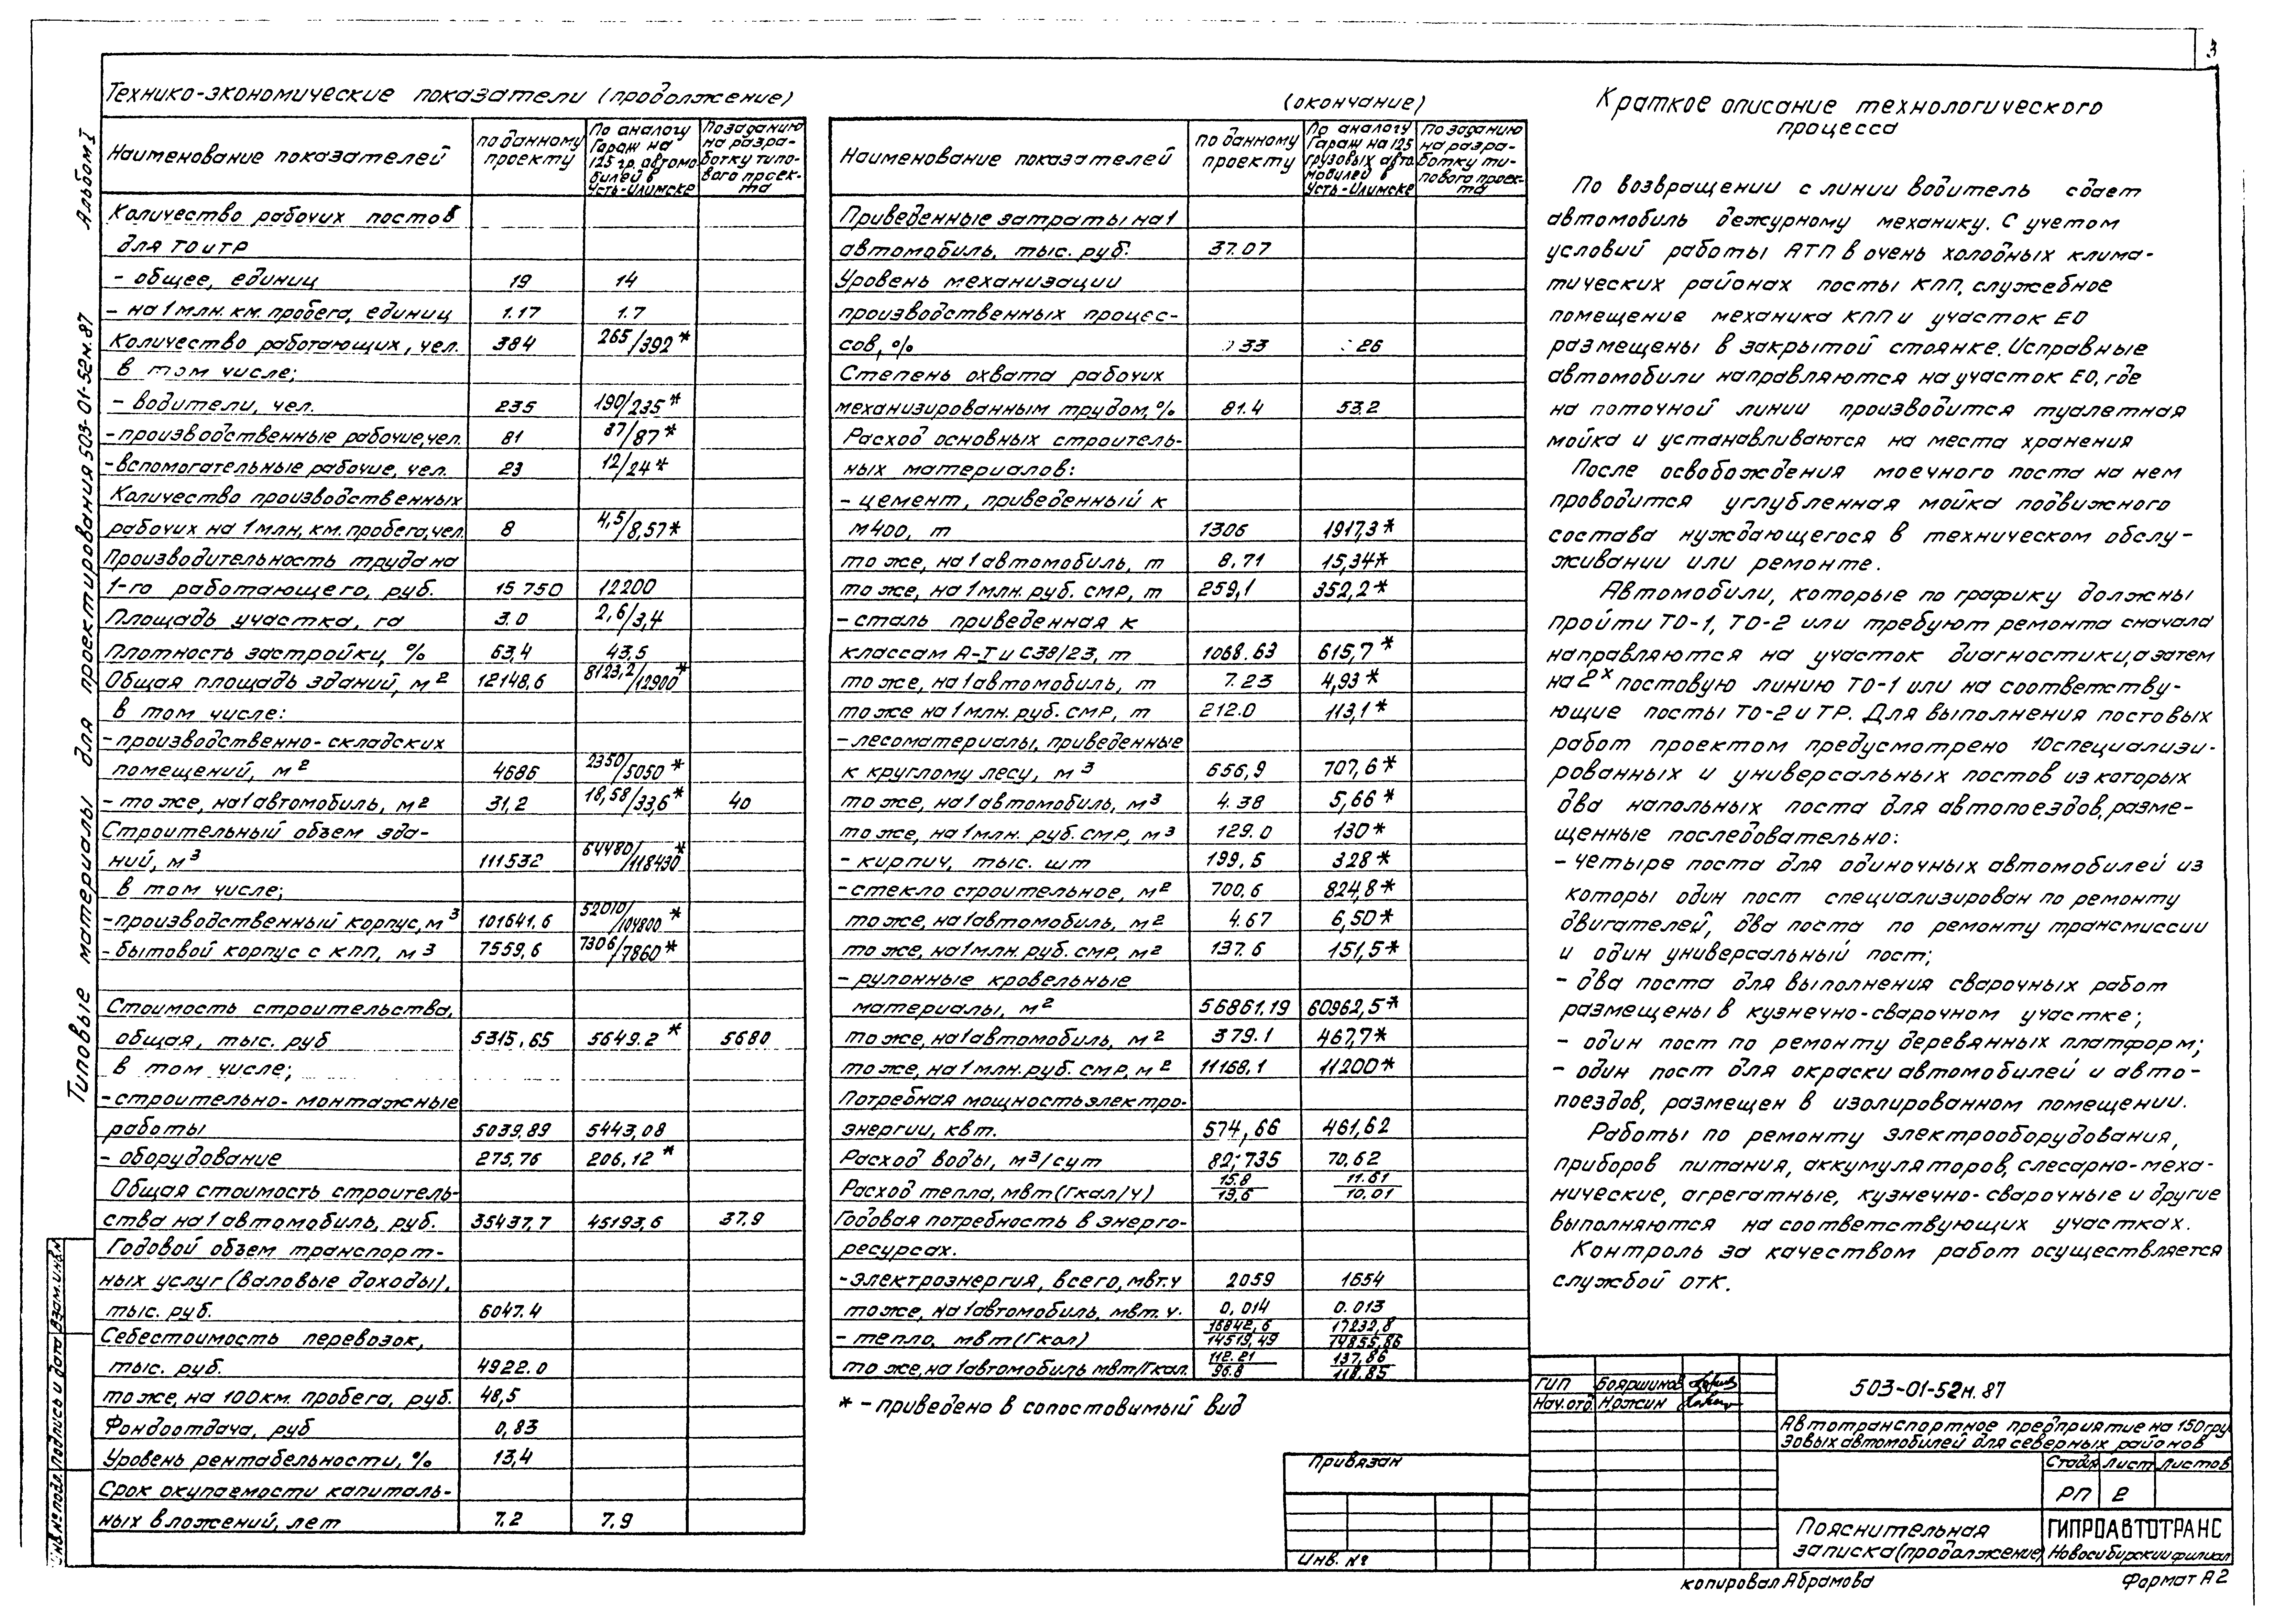 3
Альбом I
Типовые материалы для проектирования 503-01-52м.87
Технико-экономические показатели (продолжение)
Наименование показателей | по данному проекту | По аналогу Гараж на 125 гр. автомобилей в Усть-Илимске | По заданию на разработку типового проекта
Количество рабочих постов
для ТО и ТР
- общее, единиц 19 14
- на 1 млн. км. пробега, единиц 1.17 1.7
Количество работающих, чел. 384 265/392*
в том числе;
- водители, чел. 235 190/235*
- производственные рабочие, чел. 81 87/87*
- вспомогательные рабочие, чел. 23 12/24*
Количество производственных
рабочих на 1 млн, км. пробега, чел. 8 4,5/8,57*
Производительность труда на
1-го работающего, руб. 15 750 12200
Площадь участка, га 3.0 2,6/3,4
Плотность застройки, % 63,4 43,5
Общая площадь зданий, м2 12148,6 8123,2/12900*
в том числе:
- производственно-складских
помещений, м2 4686 2350/5050*
- то же, на 1 автомобиль, м2 31,2 18,58/33,6* 40
Строительный объем зда-
ний, м3 111532 64480/118430*
в том числе;
- производственный корпус, м3 101641.6 52010/104800*
- бытовой корпус с КПП, м3 7559,6 7306/7860*
Стоимость строительства,
общая, тыс. руб 5315,65 5649.2* 5680
в том числе;
- строительно-монтажные
работы 5039,89 5443,08
- оборудование 275,76 206,12*
Общая стоимость строитель-
ства на 1 автомобиль, руб. 35437,7 45193,6 37.9
Годовой объем транспорт-
ных услуг (валовые доходы),
тыс. руб. 6047.4
Себестоимость перевозок,
тыс. руб. 4922.0
то же, на 100 км. пробега, руб. 48,5
Фондоотдача, руб 0,83
Уровень рентабельности, % 13,4
Срок окупаемости капиталь-
ных вложений, лет 7.2 7,9
(окончание)
Наименование показателей | по данному проекту | По аналогу Гараж на 125 грузовых автомобилей в Усть-Илимске | По заданию на разработку типового проекта
Приведенные затраты на 1
автомобиль, тыс. руб. 37.07
Уровень механизации
производственных процес-
сов, % 33 26
Степень охвата рабочих
механизированным трудом, % 81.4 53.2
Расход основных строитель-
ных материалов:
- цемент, приведенный к
М400, т 1306 1917,3*
то же, на 1 автомобиль, т 8.71 15,34*
то же, на 1 млн. руб. СМР, т 259,1 352,2*
- сталь приведенная к
классам А-I и С38/23, т 1068.63 615,7*
то же, на 1 автомобиль, т 7.23 4,93*
то же на 1 млн. руб. СМР, т 212.0 113,1*
- лесоматериалы, приведенные
к круглому лесу, м3 656,9 707,6*
то же, на 1 автомобиль, м3 4.38 5,66*
то же, на 1 млн. руб. СМР, м3 129.0 130*
- кирпич, тыс. шт 199,5 328*
- стекло строительное, м2 700.6 824,8*
то же, на 1 автомобиль, м2 4.67 6,50*
то же, на 1 млн. руб. СМР, м2 137.6 151,5*
- рулонные кровельные
материалы, м2 56861.19 60962,5*
то же, на 1 автомобиль, м2 379.1 467,7*
то же, на 1 млн. руб. СМР, м2 11168,1 11200*
Потребная мощность электро-
энергии, квт. 574,66 461,62
Расход воды, м3/сут 82,735 70.62
Расход тепла, мвт (Гкал/ч) 15.8/13,6 11.61/10.01
Годовая потребность в энерго-
ресурсах.
- электроэнергия, всего, мвт.ч 2059 1654
то же, на 1 автомобиль, мвт.ч. 0,014 0.013
- тепло, мвт (Гкал) 16842,6/14519,49 17232,8/14855,86
то же, на 1 автомобиль мвт/Гкал. 112.21/96.8 137,86/118.85
* - приведено в сопоставимый вид
Краткое описание технологического
процесса
По возвращении с линии водитель сдает
автомобиль дежурному механику. С учетом
условий работы АТП в очень холодных клима-
тических районах посты КПП, служебное
помещение механика КПП и участок ЕО
размещены в закрытой стоянке. Исправные
автомобили направляются на участок ЕО, где
на поточной линии производится туалетная
мойка и устанавливаются на места хранения
После освобождения моечного поста на нем
проводится углубленная мойка подвижного
состава нуждающегося в техническом обслу-
живании или ремонте.
Автомобили, которые по графику должны
пройти ТО-1, ТО-2 или требуют ремонта сначала
направляются на участок диагностики, а затем
на 2х постовую линию ТО-1 или на соответству-
ющие посты ТО-2 и ТР. Для выполнения постовых
работ проектом предусмотрено 10 специализи-
рованных и универсальных постов из которых
два напольных поста для автопоездов, разме-
щенные последовательно:
- четыре поста для одиночных автомобилей из
которы один пост специализирован по ремонту
двигателей, два поста по ремонту трансмиссии
и один универсальный пост;
- два поста для выполнения сварочных работ
размещены в кузнечно-сварочном участке;
- один пост по ремонту деревянных платформ;
- один пост для окраски автомобилей и авто-
поездов, размещен в изолированном помещении.
Работы по ремонту электрооборудования,
приборов питания, аккумуляторов, слесарно-меха-
нические, агрегатные, кузнечно-сварочные и другие
выполняются на соответствующих участках.
Контроль за качеством работ осуществляется
службой ОТК.
ГИП Бояршинов
Нач. отд. Ножин
503-01-52м.87
Автотранспортное предприятие на 150 гру-
зовых автомобилей для северных районов
Стадия Лист Листов
РП 2
Пояснительная
записка (продолжение)
ГИПРОАВТОТРАНС
Новосибирский филиал
Привязан
Инв. №
Инв. № подл. Подпись и дата Взам. инв. №
копировал Абрамова
Формат А2